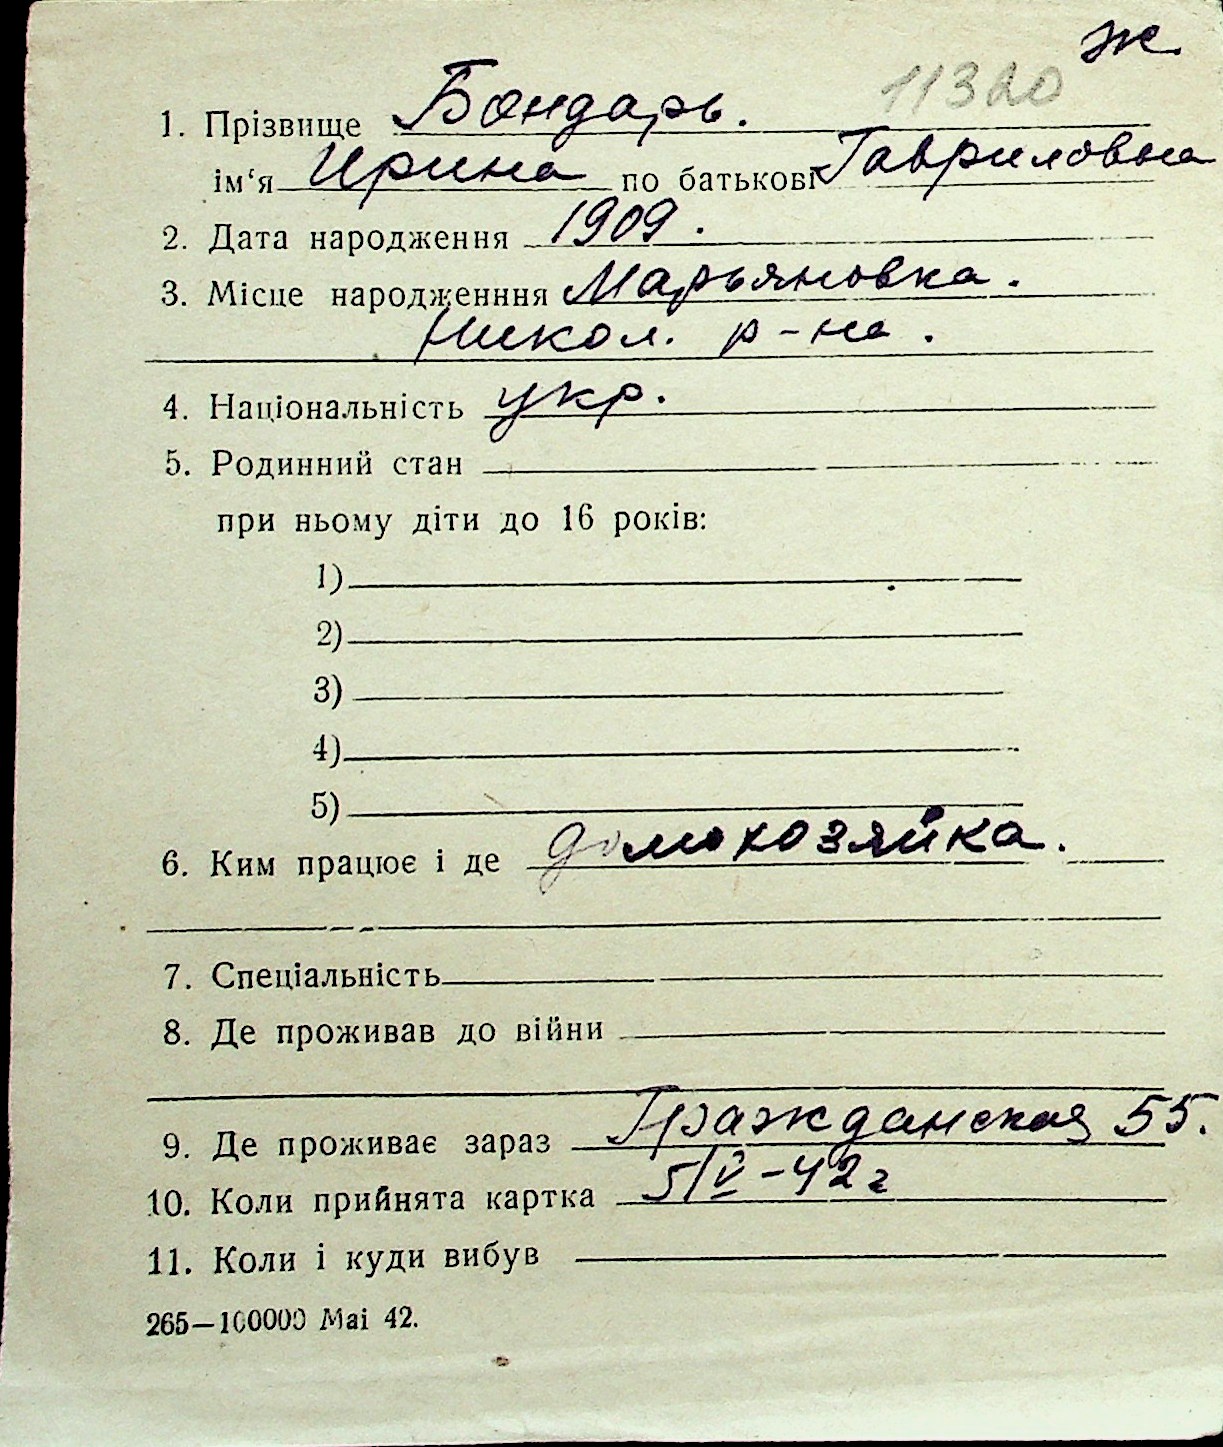 ж
11320
1. Прізвище Бондарь.
ім‘я Ирина по батькові Гавриловна
2. Дата народження 1909.
3. Місце народженння Марьяновка.
Никол. р-на.
4. Національність укр.
5. Родинний стан
при ньому діти до 16 років:
1)
2)
3)
4)
5)
6. Ким працює і де домохозяйка.
7. Спеціальність
8. Де проживав до війни
9. Де проживає зараз Гражданская 55.
10. Коли прийнята картка 5/V-42 г
11. Коли і куди вибув
265—100000 Mai 42.